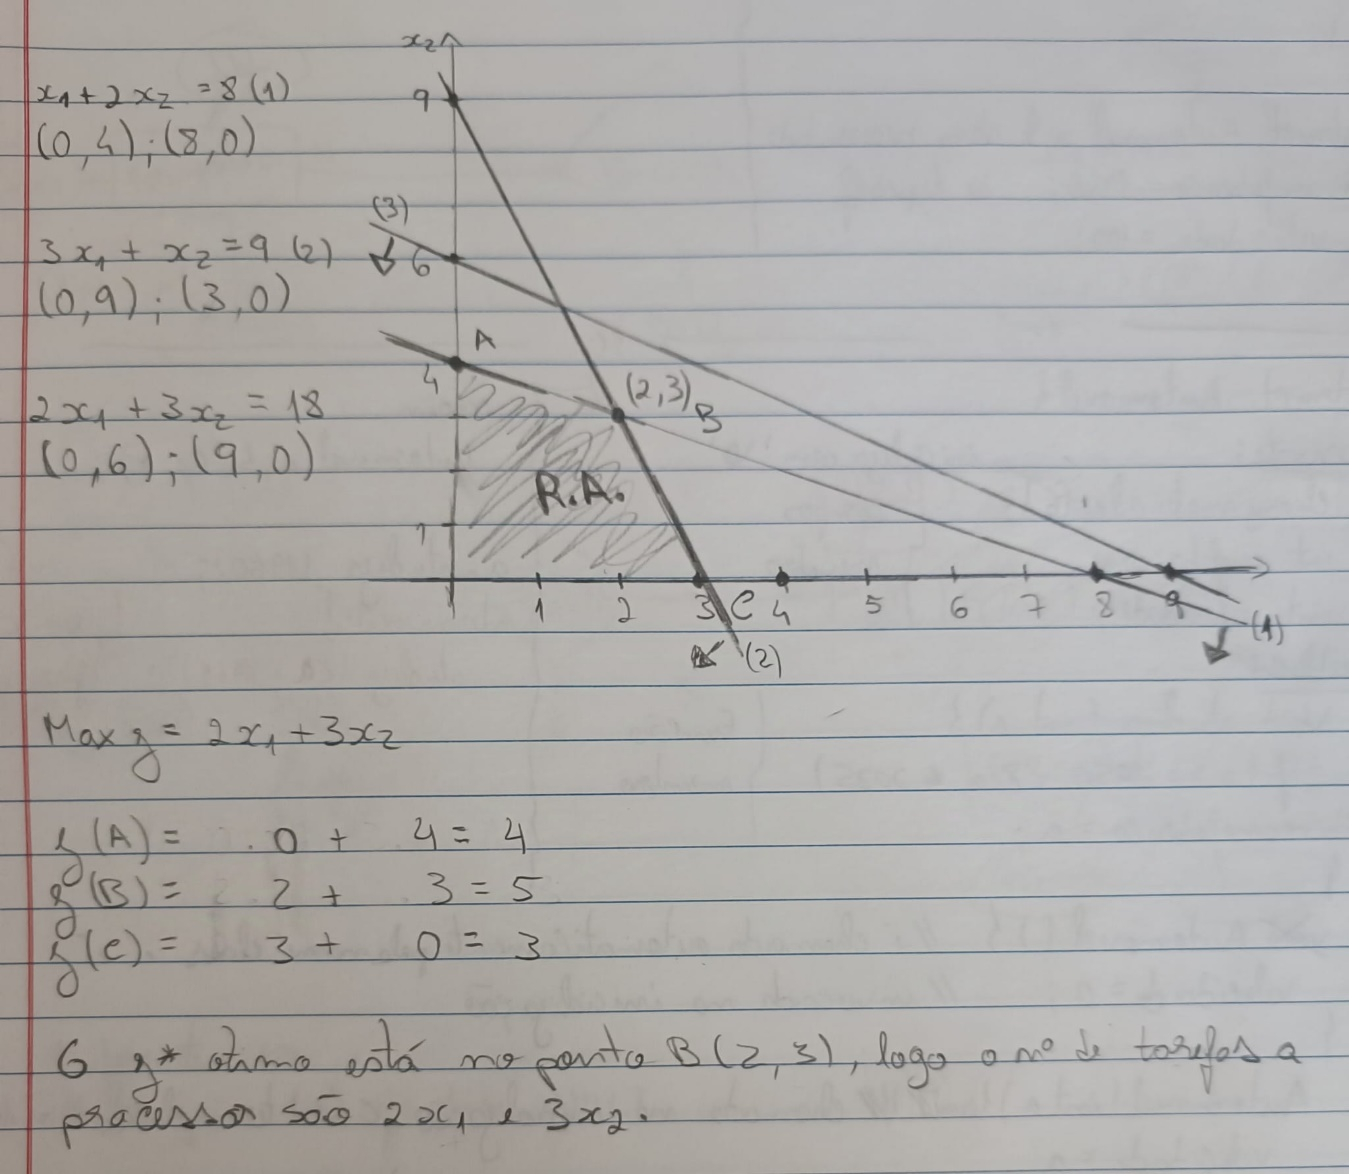 x₁ + 2x₂ = 8 (1)
(0,4) ; (8,0)
3x₁ + x₂ = 9 (2)
(0,9) ; (3,0)
2x₁ + 3x₂ = 18
(0,6) ; (9,0)
x₂
9
(3)
6
A
4
(2,3) B
R.A.
1
1 2 3 C 4 5 6 7 8 9
(2)
(1)
Max z = 2x₁ + 3x₂
z(A) = 0 + 4 = 4
z(B) = 2 + 3 = 5
z(C) = 3 + 0 = 3
O z* otimo está no ponto B (2,3), logo o nº de tarefas a
processar são 2x₁ e 3x₂.